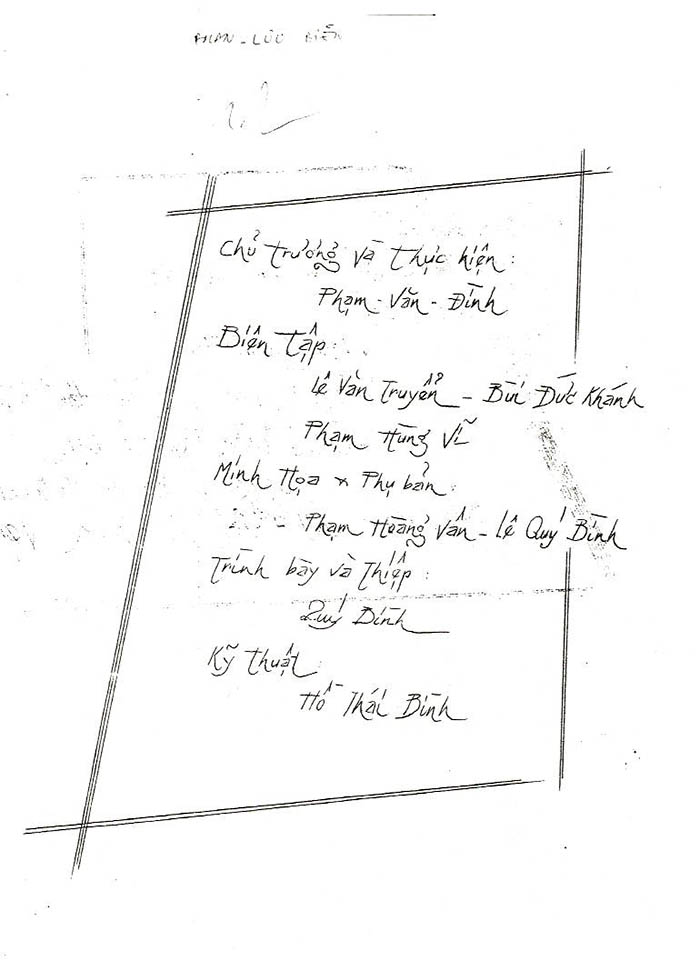 PHAN - LƯU BIỂN
Chủ trương và Thực hiện:
Phạm - Văn - Đính
Biên Tập:
Lê Văn Truyển - Bùi Đức Khánh
Phạm Hùng Vĩ
Minh Họa x Phụ bản:
- Phạm Hoàng Vân - Lê Quý Bình
Trình bày và Thiệp:
Quý Bình
Kỹ Thuật:
Hồ Thái Bình